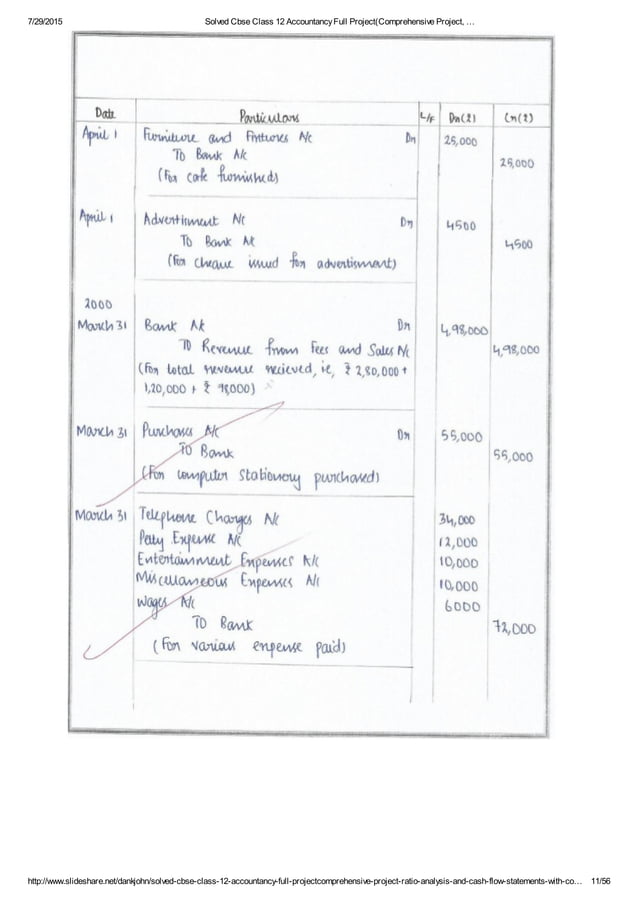 7/29/2015 Solved Cbse Class 12 Accountancy Full Project(Comprehensive Project, …
Date Particulars L/F Dr(₹) Cr(₹)
April 1 Furniture and Fixtures A/c Dr 25,000
To Bank A/c 25,000
(For cafe furnished)
April 1 Advertisment A/c Dr 4500
To Bank A/c 4500
(For cheque issued for advertisment)
2000
March 31 Bank A/c Dr 4,98,000
To Revenue from Fees and Sales A/c 4,98,000
(For total revenue recieved, ie, ₹ 2,80,000 +
1,20,000 + ₹ 98,000)
March 31 Purchases A/c Dr 55,000
To Bank 55,000
(For computer stationery purchased)
March 31 Telephone Charges A/c 34,000
Petty Expense A/c 12,000
Entertainment Expenses A/c 10,000
Miscellaneous Expenses A/c 10,000
Wages A/c 6000
To Bank 72,000
(For various expense paid)
http://www.slideshare.net/dankjohn/solved-cbse-class-12-accountancy-full-projectcomprehensive-project-ratio-analysis-and-cash-flow-statements-with-co… 11/56